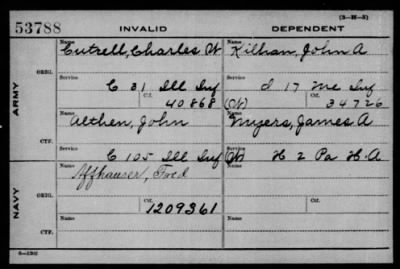 (3-H-3)
53788 INVALID DEPENDENT
ARMY
ORIG.
Name Name
Cutrell, Charles W Killian, John A
Service Service
C 31 Ill Inf d 17 Me Inf
Ctf. Ctf.
40868 (W) 34726
CTF.
Name Name
Althen, John Myers, James A
Service Service
C 105 Ill Inf (W) H 2 Pa H.A
NAVY
ORIG.
Name Name
Affhauser, Fred
Service Service
Ctf. Ctf.
1209361
CTF.
Name Name